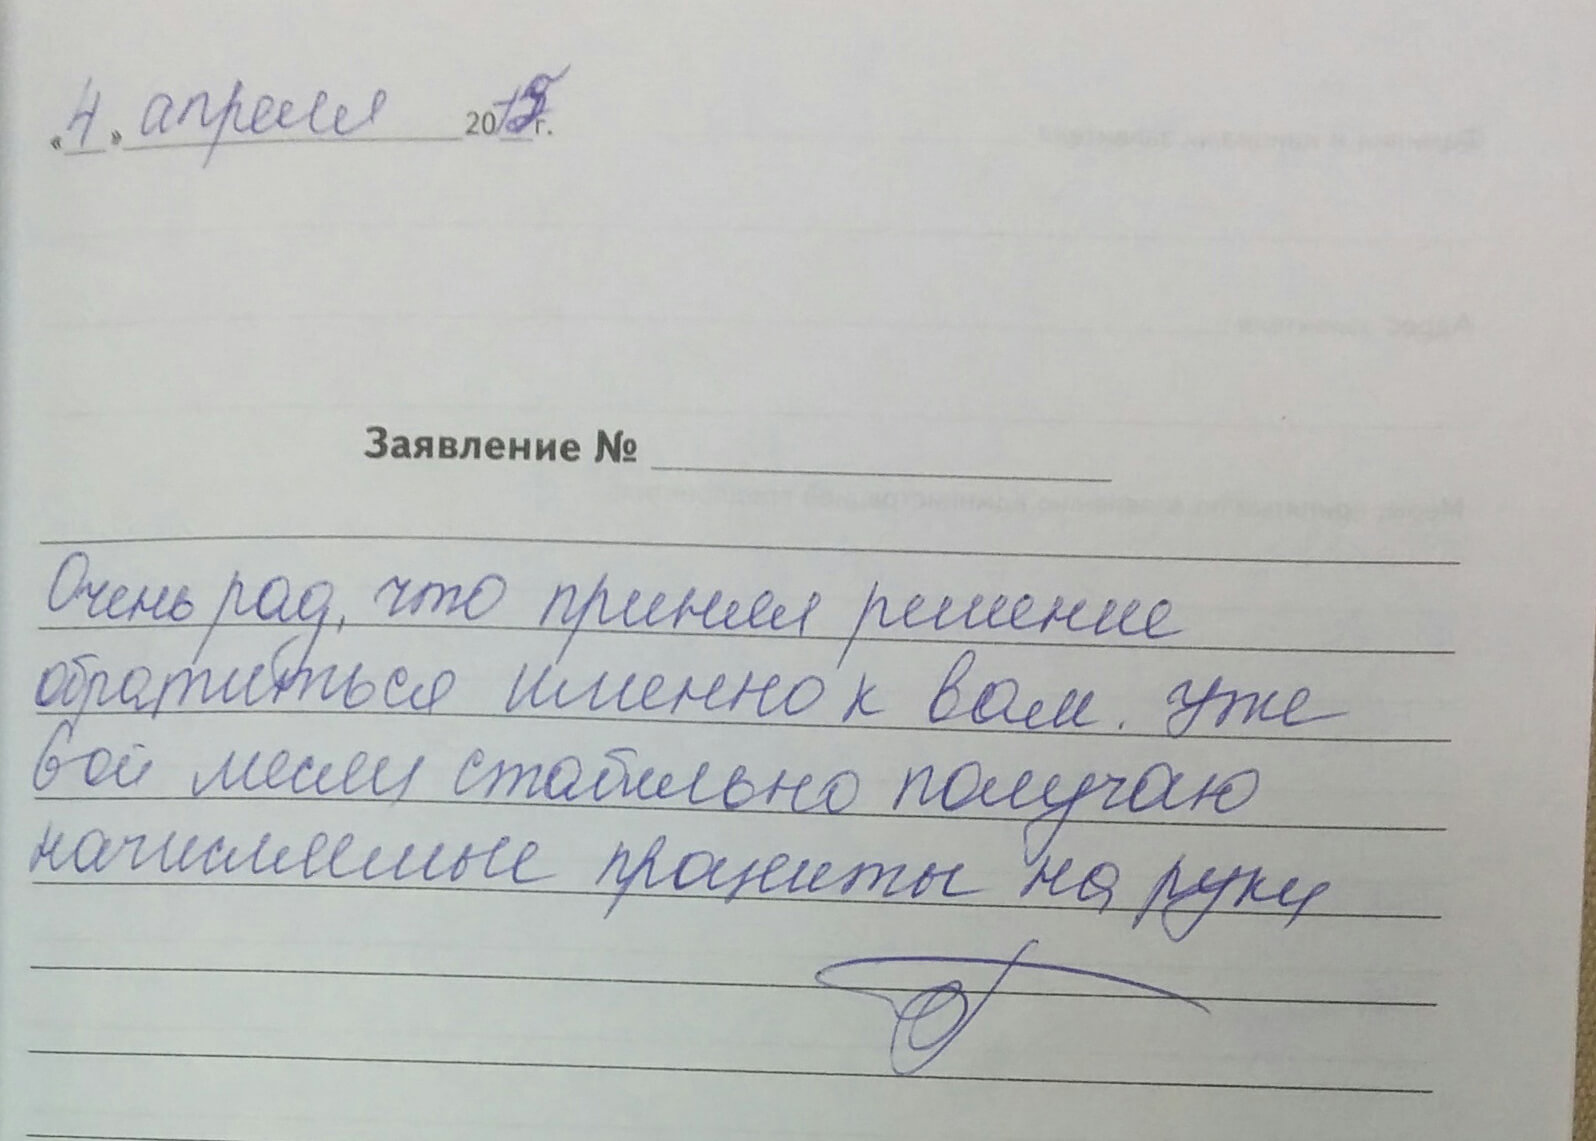 «4» апреля 2015 г.
Заявление №
Очень рад, что принял решение
обратиться именно к вам. Уже
6ой месяц стабильно получаю
начисляемые проценты на руки